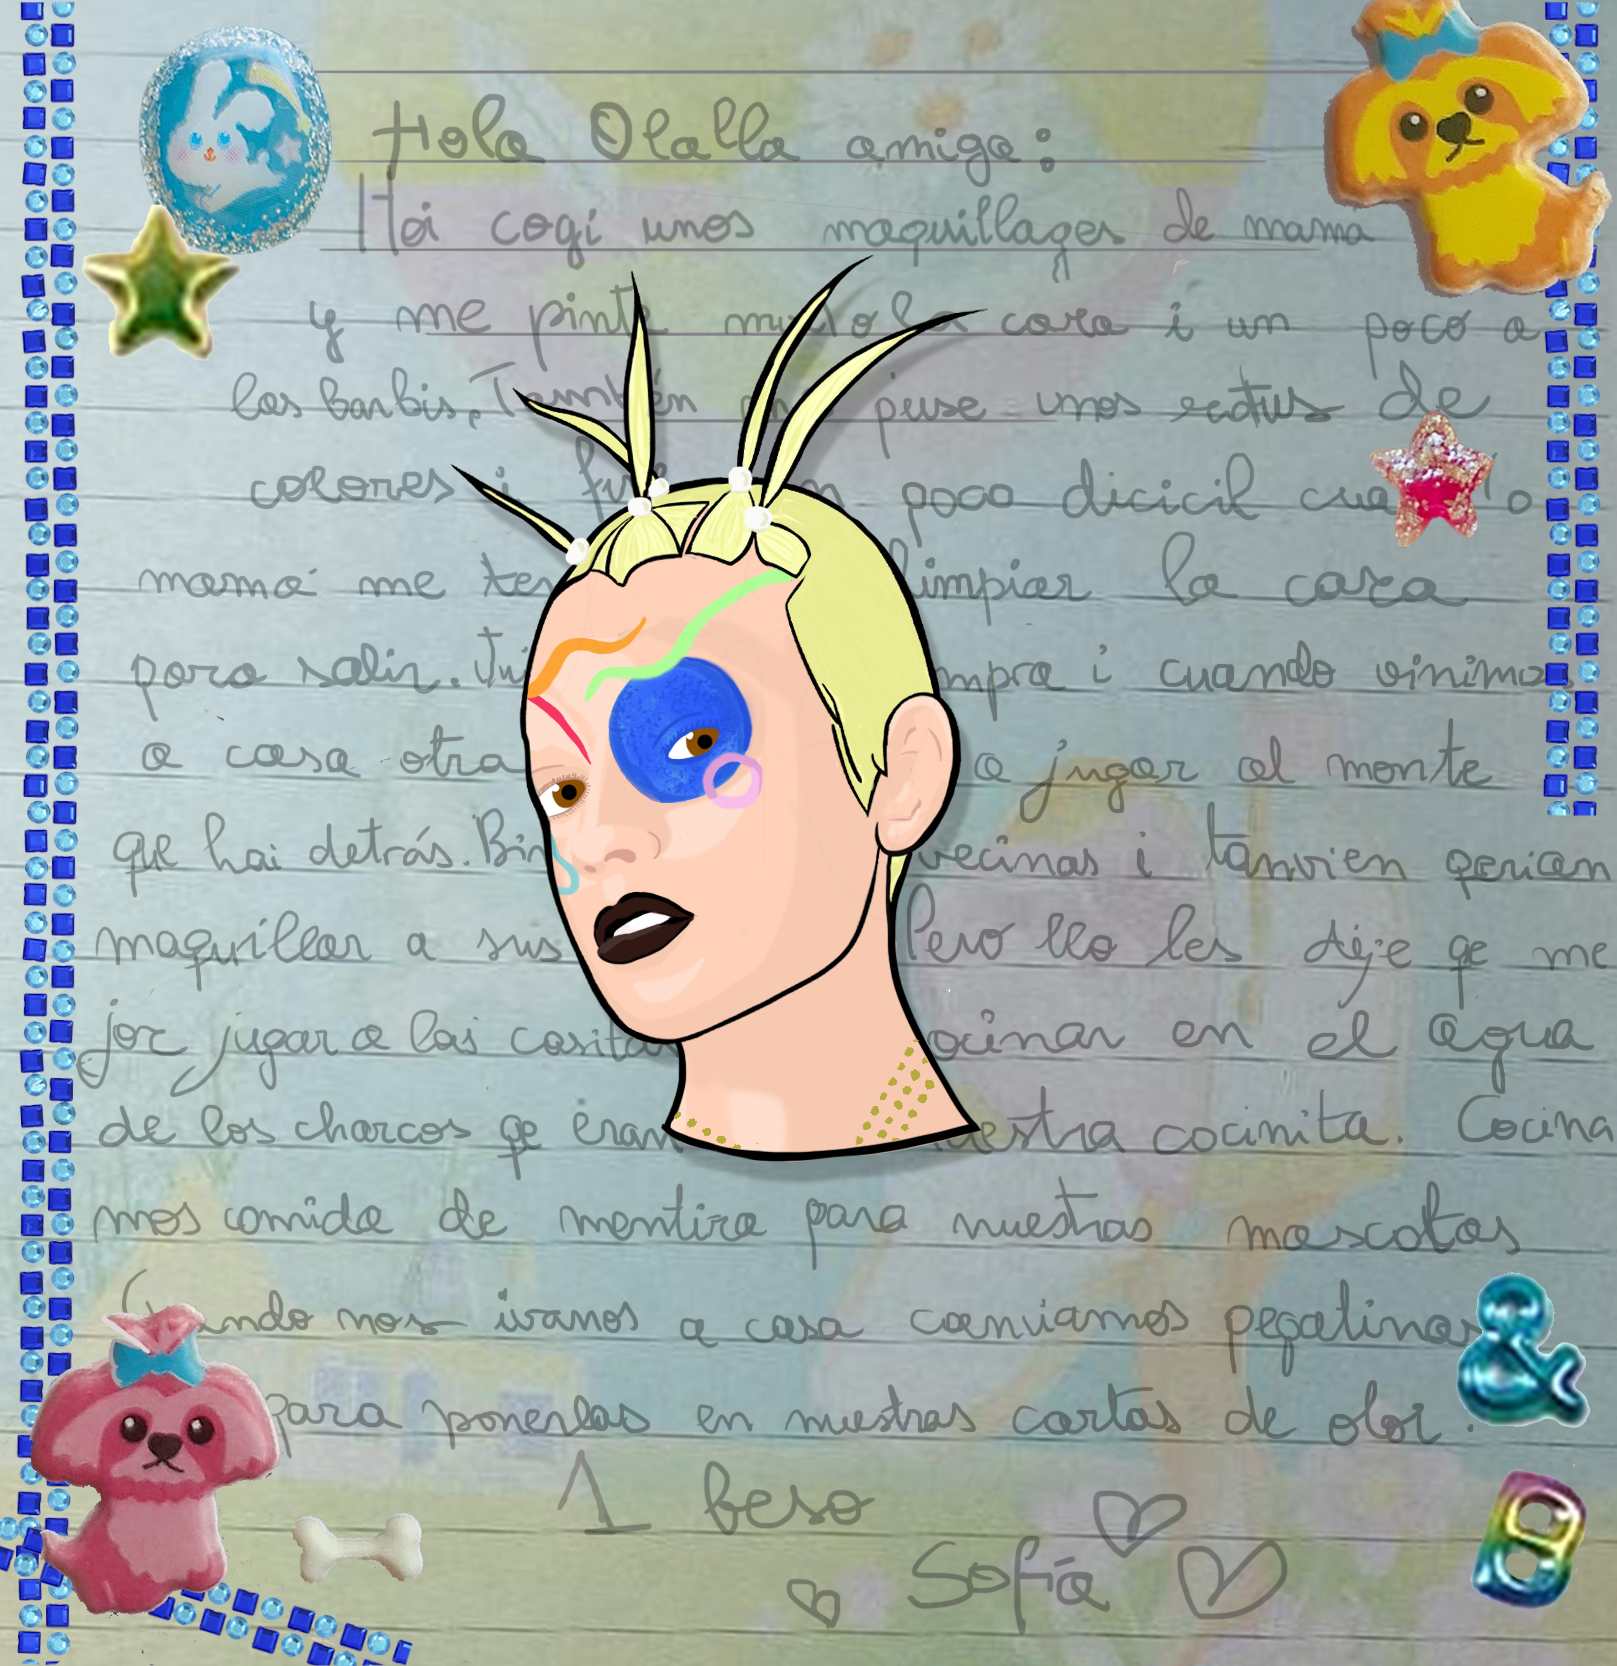 Hola Olalla amiga:
Hoi cogí unos maquillages de mama
y me pinté mucho la cara i un poco a
las barbis. También me puse unos
de
colores i poco dicicil
mamá me limpiar la cara
para salir. mpra i cuando vinimos
a casa otra a jugar al monte
que hai detrás. vecinas i tanvien qerian
maquillar a sus Pero llo les dije qe me
jor jugar a las casita ocinar en el agua
de los charcos qe eran uestra cocinita. Cocina
mos comida de mentira para nuestras mascotas
Cuando nos ivanos a casa canviamos pegatinas
para ponerlas en nuestras cartas de olor.
1 beso
Sofía